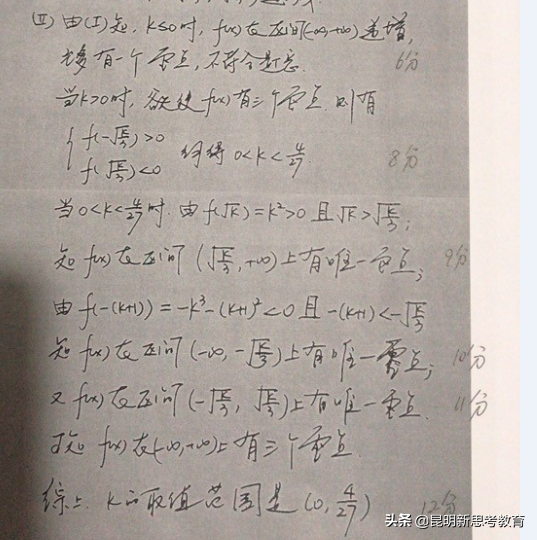 (Ⅱ) 由(Ⅰ)知, k≤0时, f(x)在区间(-∞,+∞)递增,
至多有一个零点, 不符合题意. 6分
当k>0时, 欲使f(x)有三个零点. 则有
{ f(-√(k/3))>0
f(√(k/3))<0 解得 0<k<4/27 8分
当0<k<4/27时. 由f(√k)=k²>0 且√k>√(k/3);
知 f(x)在区间(√(k/3),+∞)上有唯一零点; 9分
由 f(-(k+1))=-k³-(k+1)²<0 且 -(k+1)<-√(k/3)
知 f(x)在区间(-∞,-√(k/3))上有唯一零点; 10分
又 f(x)在区间(-√(k/3), √(k/3))上有唯一零点. 11分
故知 f(x)在(-∞,+∞)上有三个零点
综上. k的取值范围是(0, 4/27) 12分
头条@昆明新思考教育